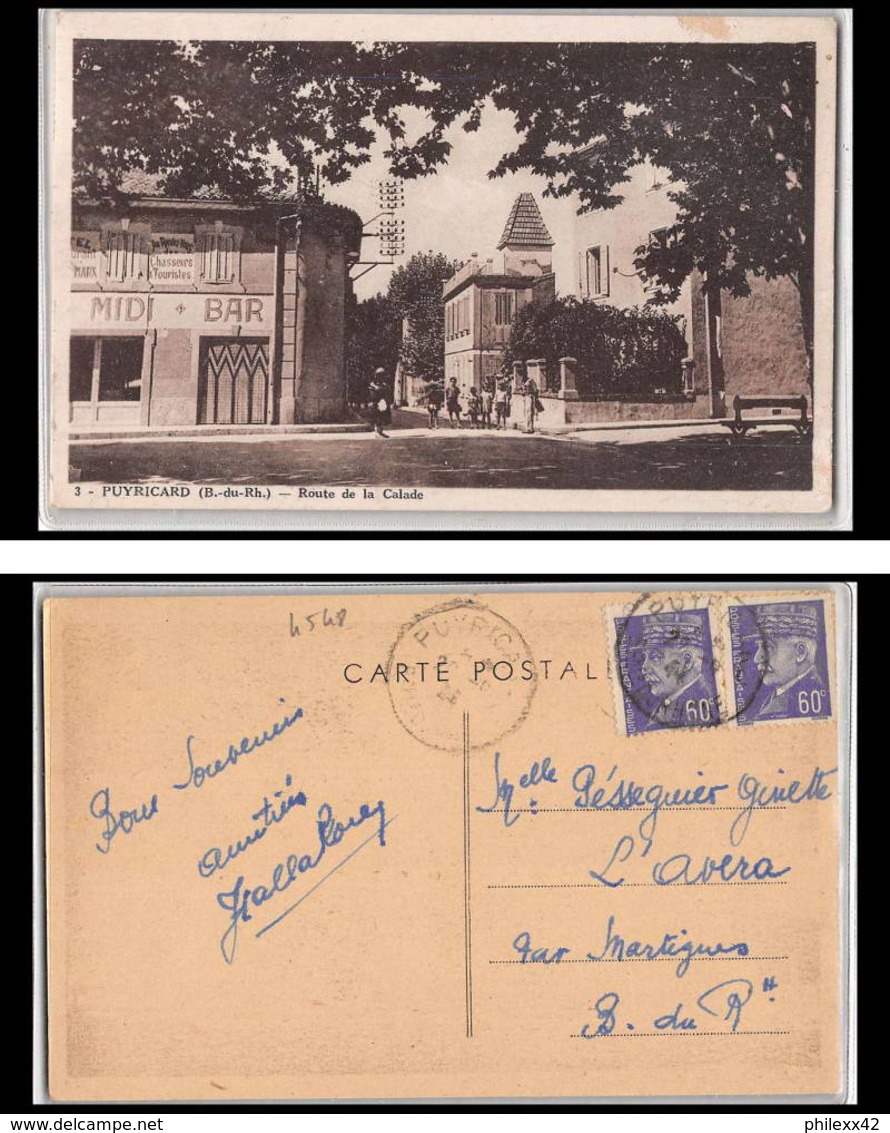 Chasseurs
& Touristes
MIDI BAR
3 - PUYRICARD (B.-du-Rh.) — Route de la Calade
4548
PUYRICA
CARTE POSTAL
60c
60c
Bons Souvenirs
amitiés
Melle Pésseguier Ginette
L'Avera
par Martigues
B. du R.H
www.delcampe.net
philexx42